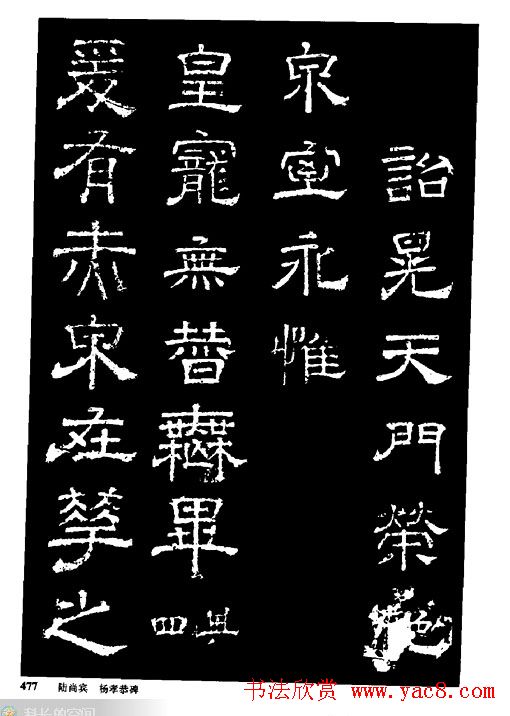 詒晃天門榮
泉室永惟
皇寵無替畢其四
爰有赤泉在華之
477 陆尚宾 杨孝恭碑
书法欣赏 www.yac8.com